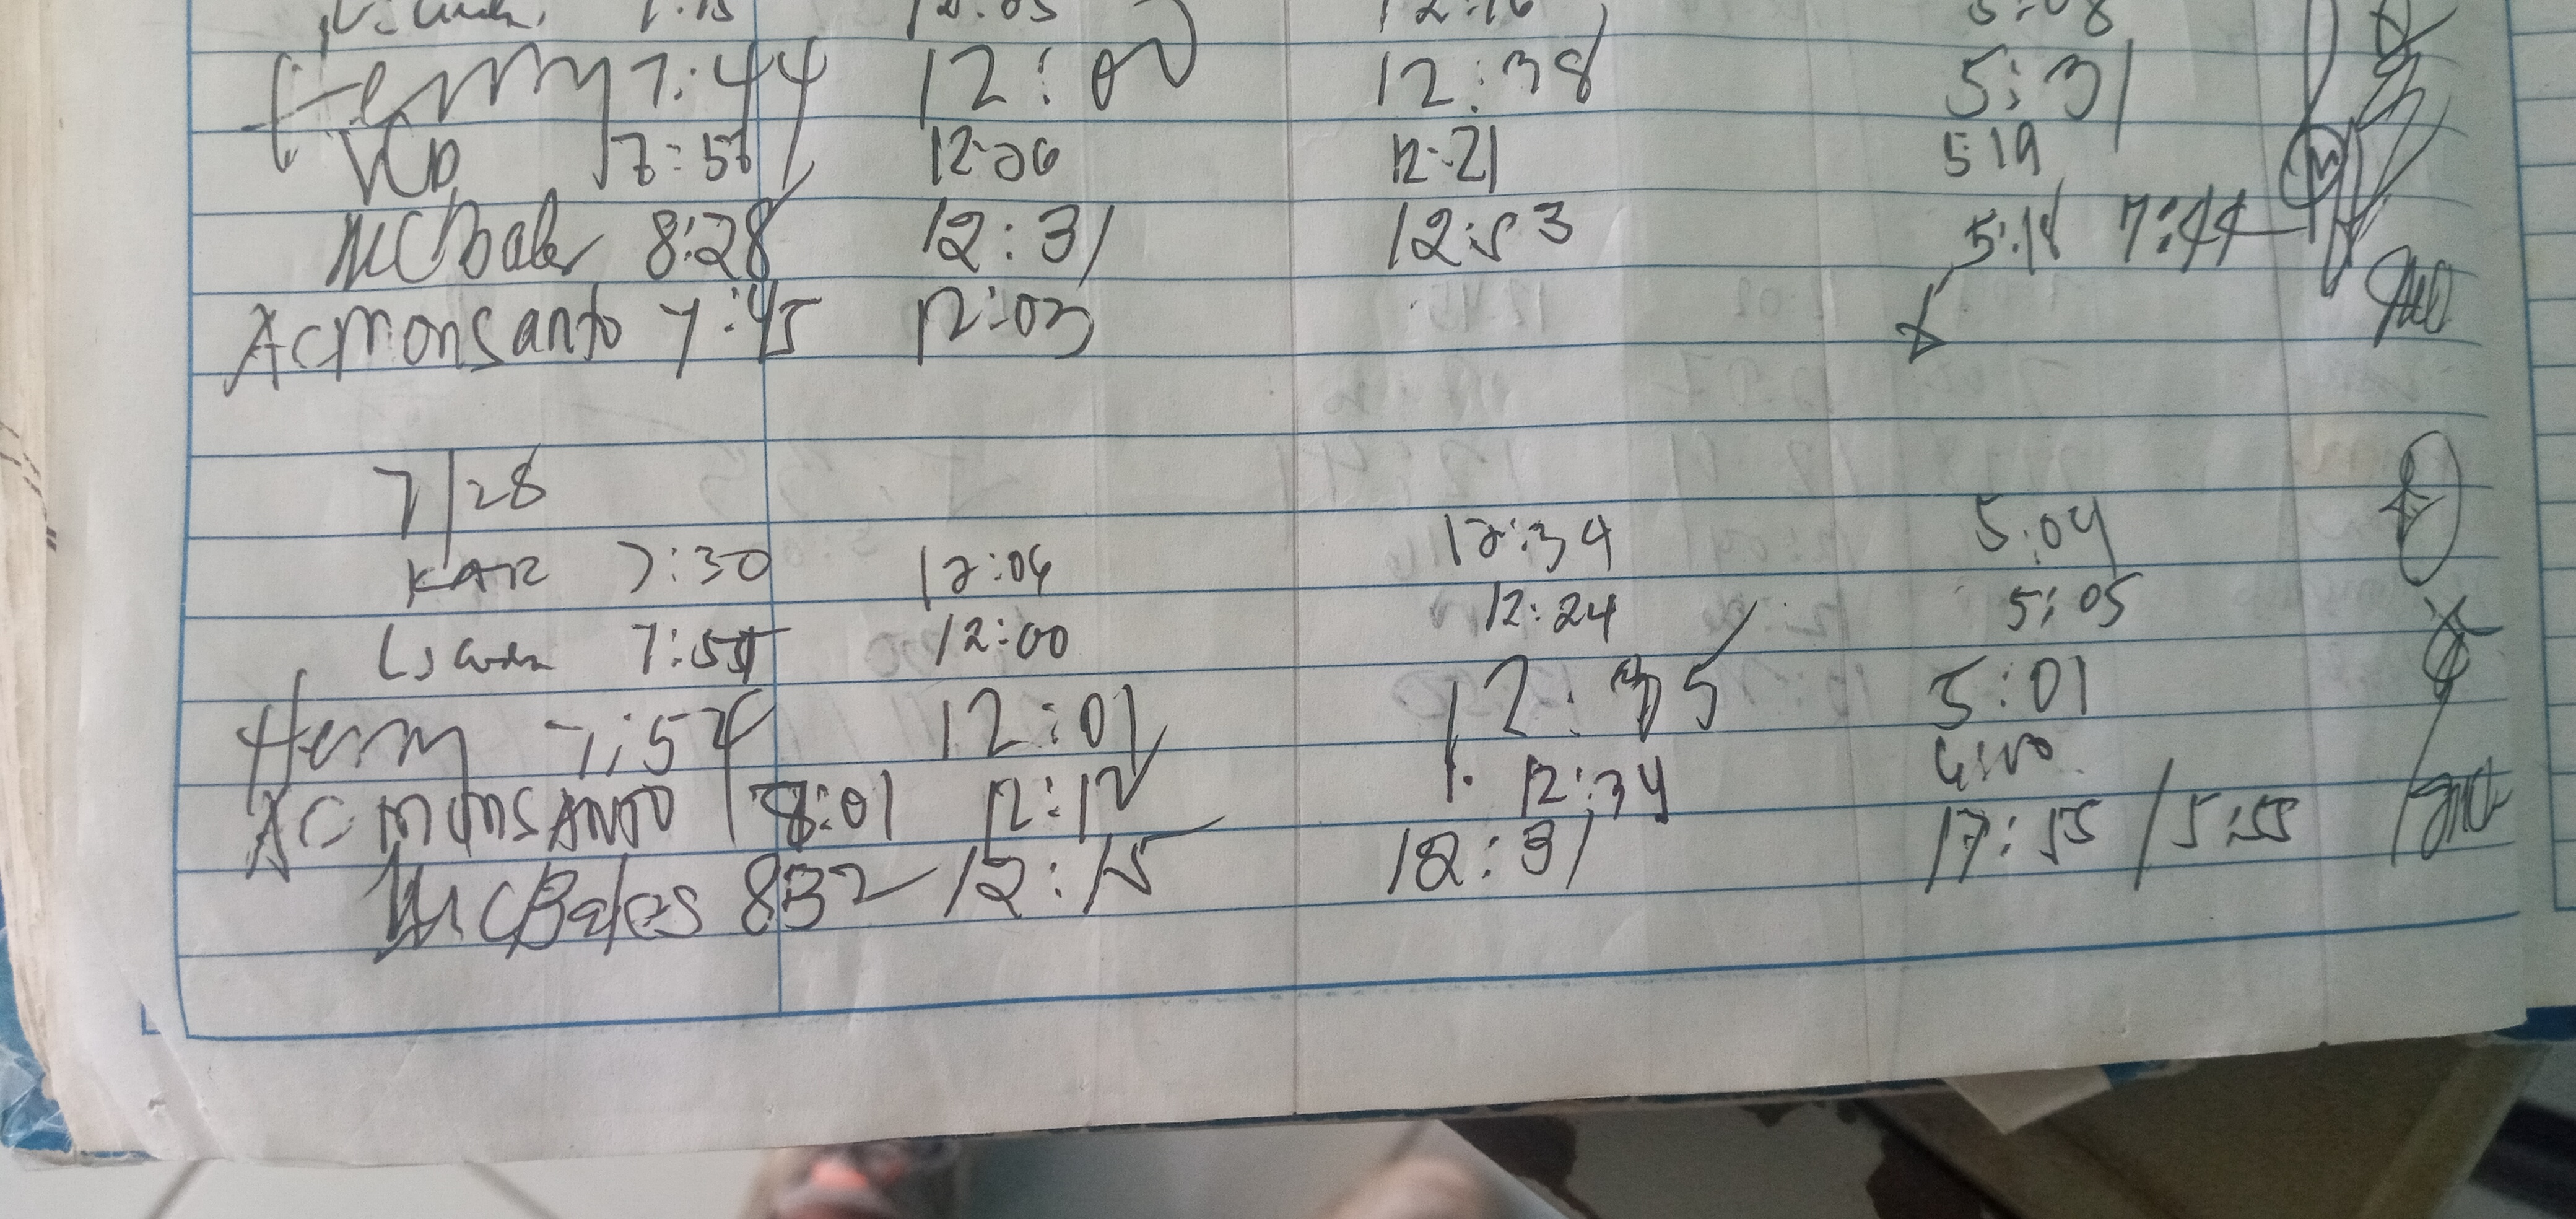 12:05 12:16 5:08
Henry 7:44 12:00 12:38 5:31
VCD 7:57 12:06 12:21 519
MCBales 8:28 12:31 12:53 5:18 7:44
Acmonsanto 7:45 12:03
7/28
KAR 7:30 12:06 12:34 5:04
7:55 12:00 12:24 5:05
Henry 7:54 12:01 12:35 5:01
AC MONSANTO 8:01 12:12 12:34
MCBales 832 12:15 12:31 17:55 / 5:55